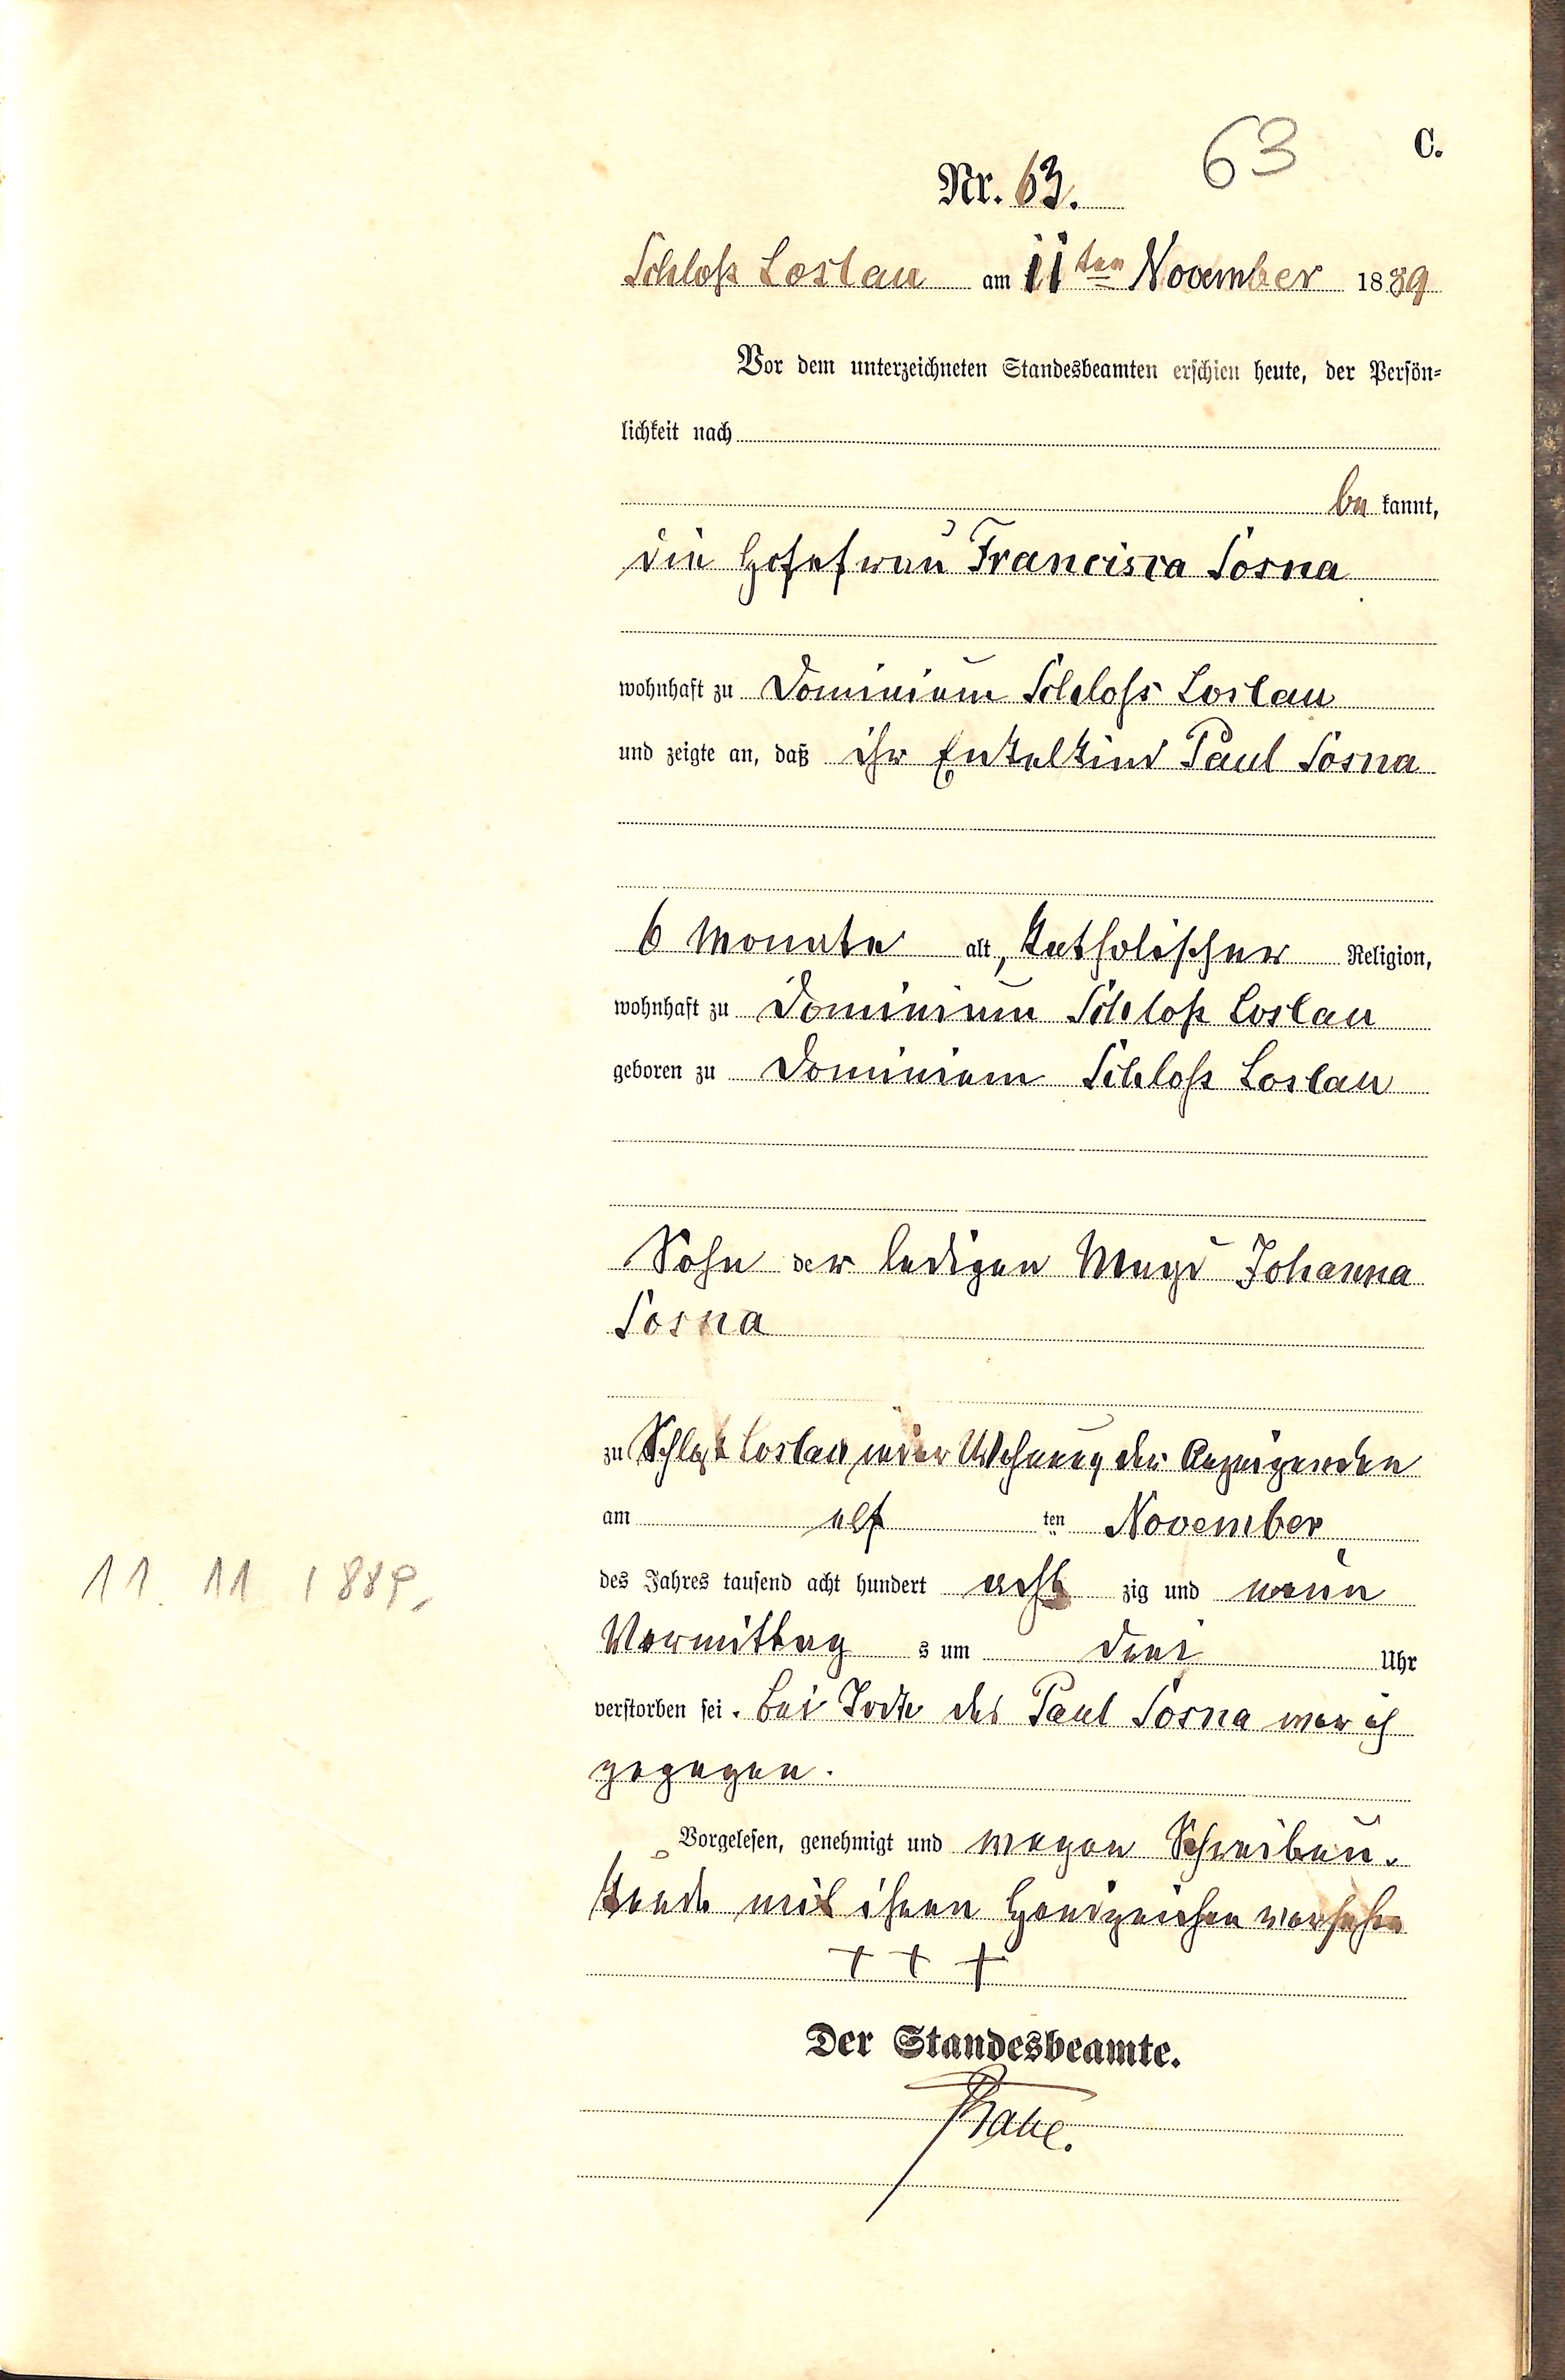 C.
63
Nr. 63.
Schloß Loslau am 11ten November 1889
Vor dem unterzeichneten Standesbeamten erschien heute, der Persön-
lichkeit nach
be kannt,
die Hofefrau Francisca Sosna
wohnhaft zu Dominium Schloss Loslau
und zeigte an, daß ihr Enkelkind Paul Sosna
6 Monate alt, katholischer Religion,
wohnhaft zu Dominium Schloß Loslau
geboren zu Dominium Schloß Loslau
Sohn der ledigen Magd Johanna
Sosna
zu Schloß Loslau in der Wohnung der Anzeigenden
am elf ten November
11. 11 1889.
des Jahres tausend acht hundert acht zig und neun
Vormittag s um drei Uhr
verstorben sei. Bei Tode des Paul Sosna war ich
gegegen.
Vorgelesen, genehmigt und wegen Schreibun-
kunde mit ihren Handzeichen versehen
+ + +
Der Standesbeamte.